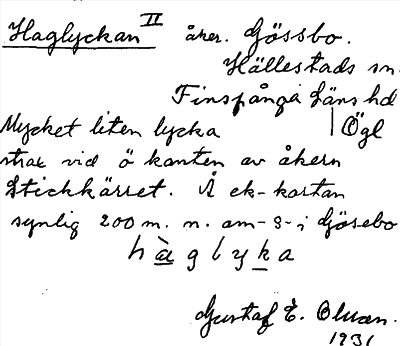 Haglyckan II åker. Gössbo.
Hällestads sn.
Finspånga Läns hd
Mycket liten lycka | Ögl
strax vid ö kanten av åkern
Stickkärret. Å ek-kartan
synlig 200 m. n. om -s- i Gösebo
hàglyka
Gustaf E. Olson.
1931